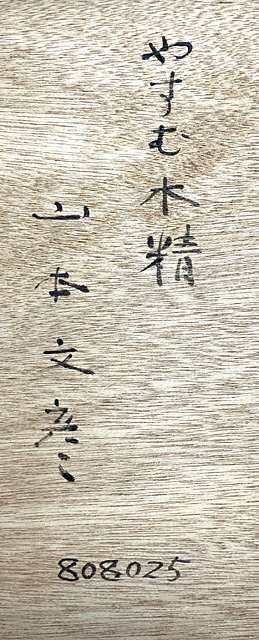 やすむ木精
山本文彦
808025